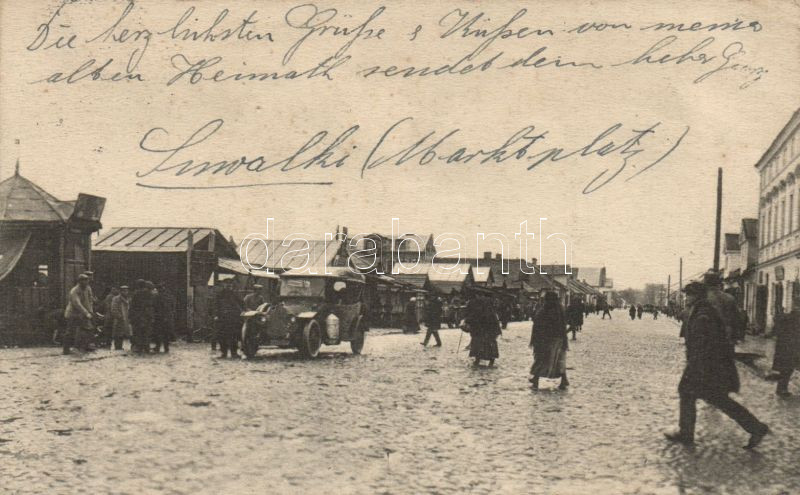 Die herzlichsten Grüße & Küßen von meine
alten Heimath sendet dein
Suwalki (Marktplatz)
darabanth